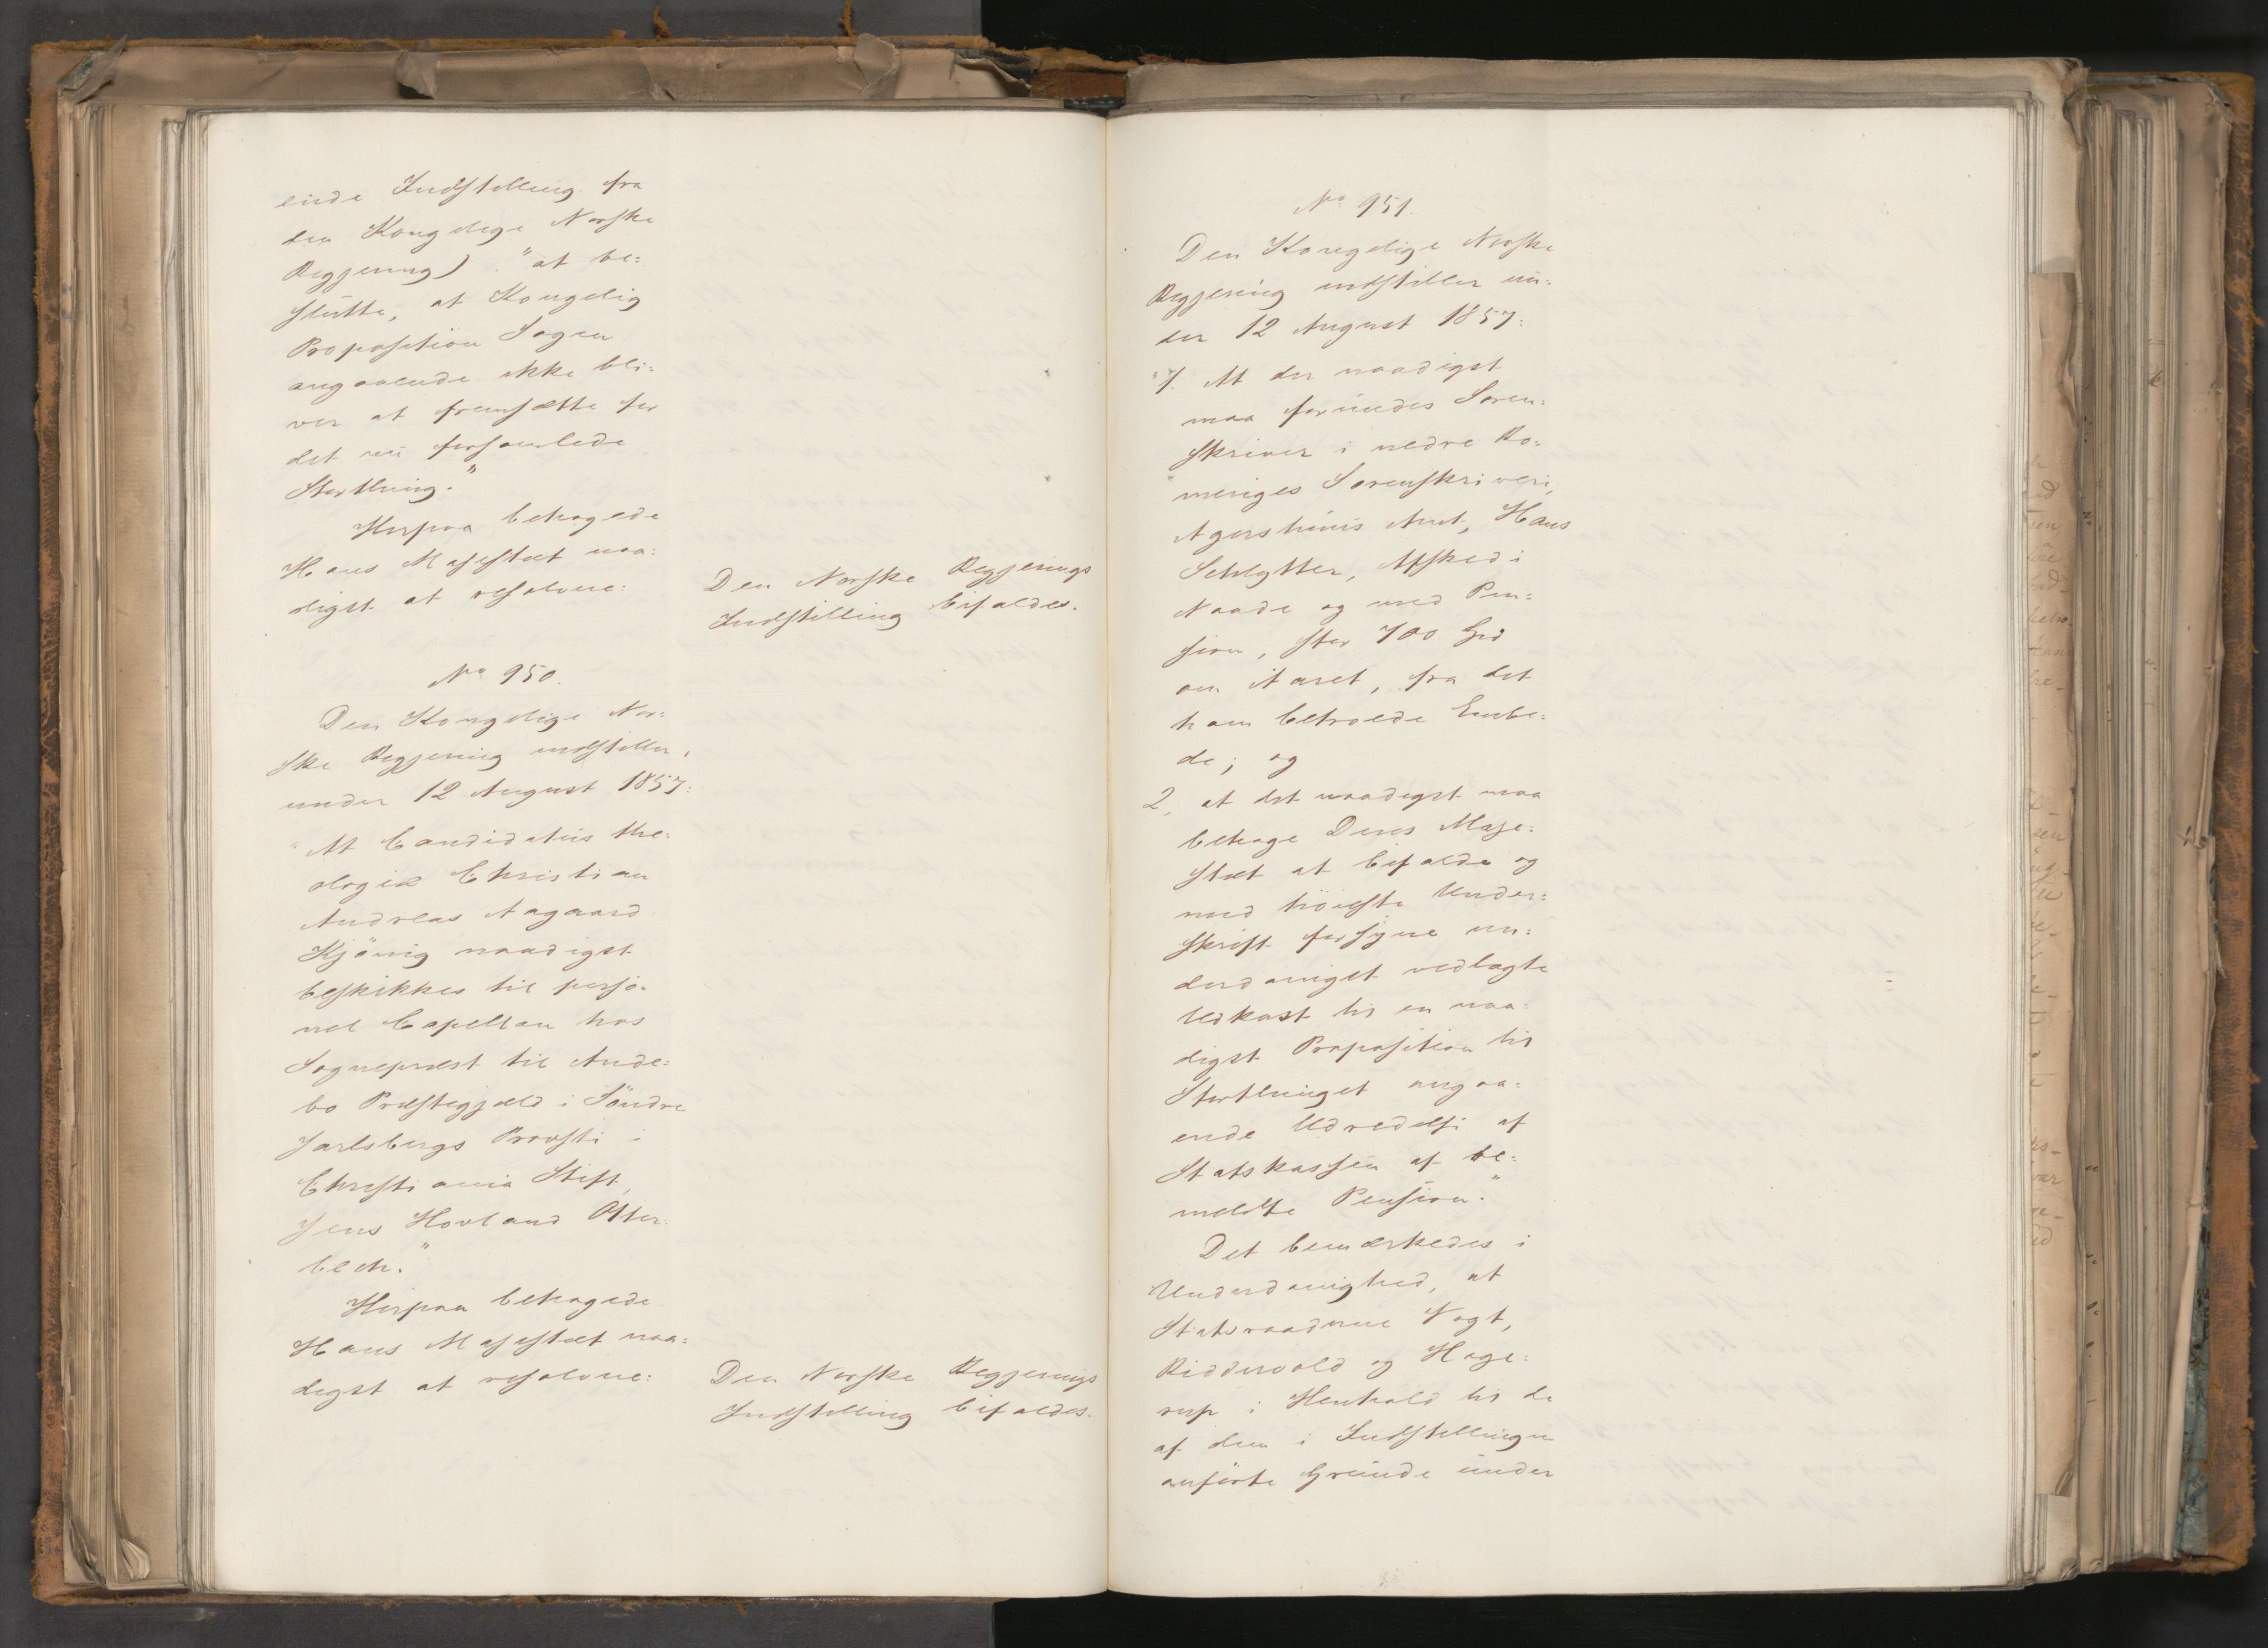 ende Indstilling fra
den Kongelige Norske
Regjering) "at be=
slutte, at Kongelig
Proposition Sagen
angaaende ikke bli=
ver at fremsætte for
det nu forsamlede
Storthing."
Herpaa behagede
Hans Majestæt naa=
digst at resolvere:
Den Norske Regjerings
Indstilling bifaldes.
No 950.
Den Kongelige Nor=
ske Regjering indstiller,
under 12 August 1857:
"At Candidatus the=
ologiæ Christian
Andreas Aagaard
Kjönig naadigst
beskikkes til perso=
nel Capellan hos
Sognepræst til Ande=
bo Præstegjæld i Söndre
Jarlsbergs Provsti i
Christiania Stift,
Jens Hovland Otter=
bech."
Herpaa behagede
Hans Majestæt naa=
digst at resolvere:
Den Norske Regjerings
Indstilling bifaldes.
No 951.
Den Kongelige Norske
Regjering indstiller un=
der 12 August 1857:
"1. At der naadigst
maa forundes Soren=
skriver i nedre Ro=
meriges Sorenskriveri,
Agershuus Amt, Hans
Schlytter, Afsked i
Naade og med Pen=
sion, stor 700 Spd
om Aaret, fra det
ham betroede Embe=
de; og
2, at det naadigst maa
behage Deres Maje=
stæt at bifalde og
med höieste Under=
skrift forsyne un=
derdanigst vedlagte
Udkast til en naa=
digst Proposition til
Storthinget angaa=
ende Udredelse af
Statskassen af be=
meldte Pension."
Det bemærkedes i
Underdanighed, at
Statsraaderne Vogt,
Riddervold og Hage=
rup i Henhold til de
af dem i Indstillingen
anförte Grunde under